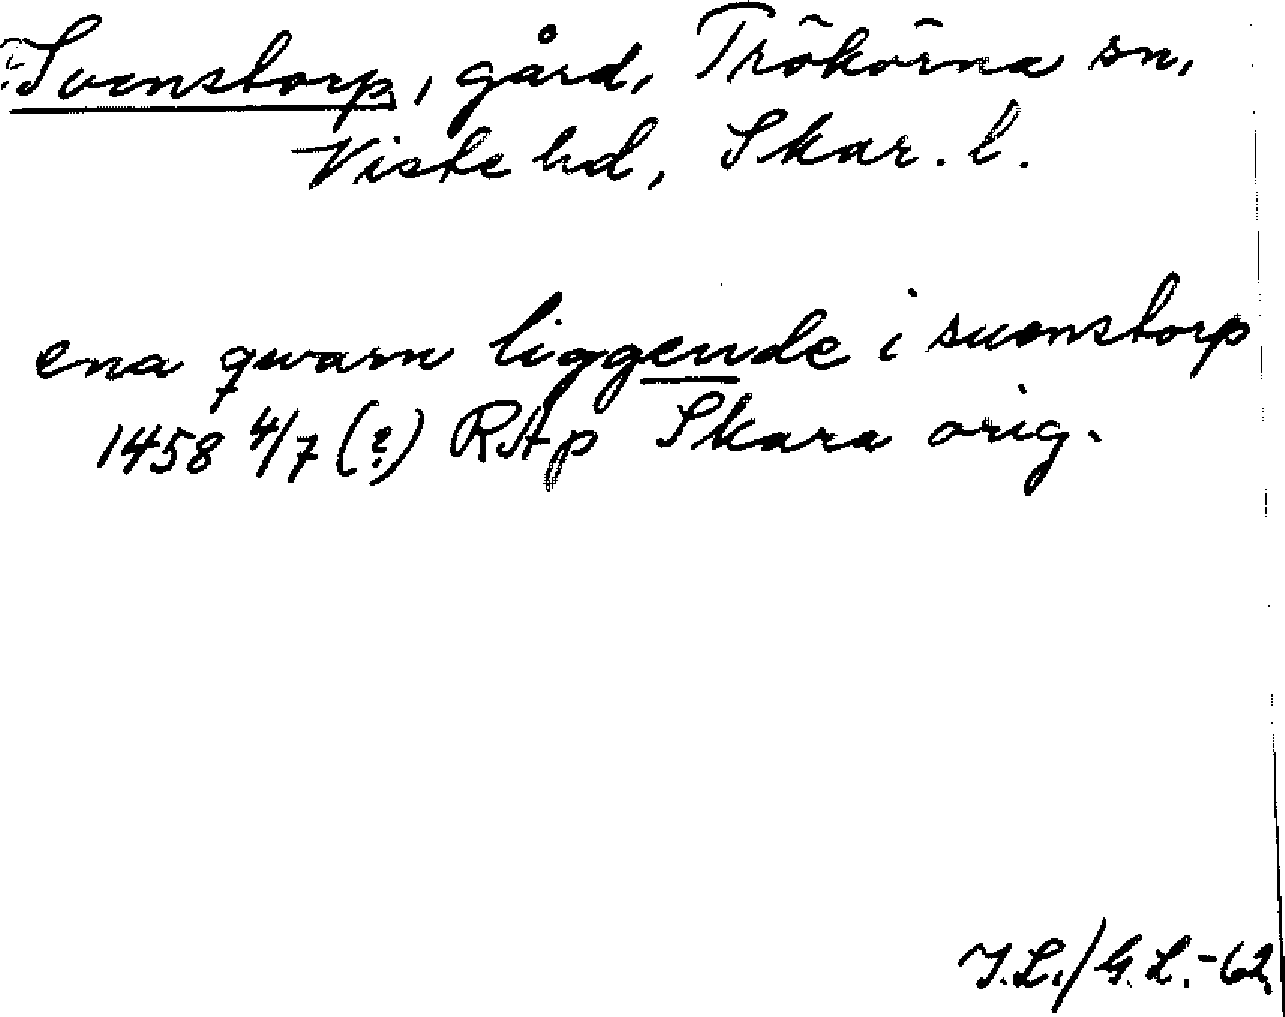 Svenstorp, gård, Trökörna sn,
Viste hd, Skar. l.
ena qwarn liggende i suenstorp
1458 4/7 (?) RAp Skara orig.
I.L./G.L.-62